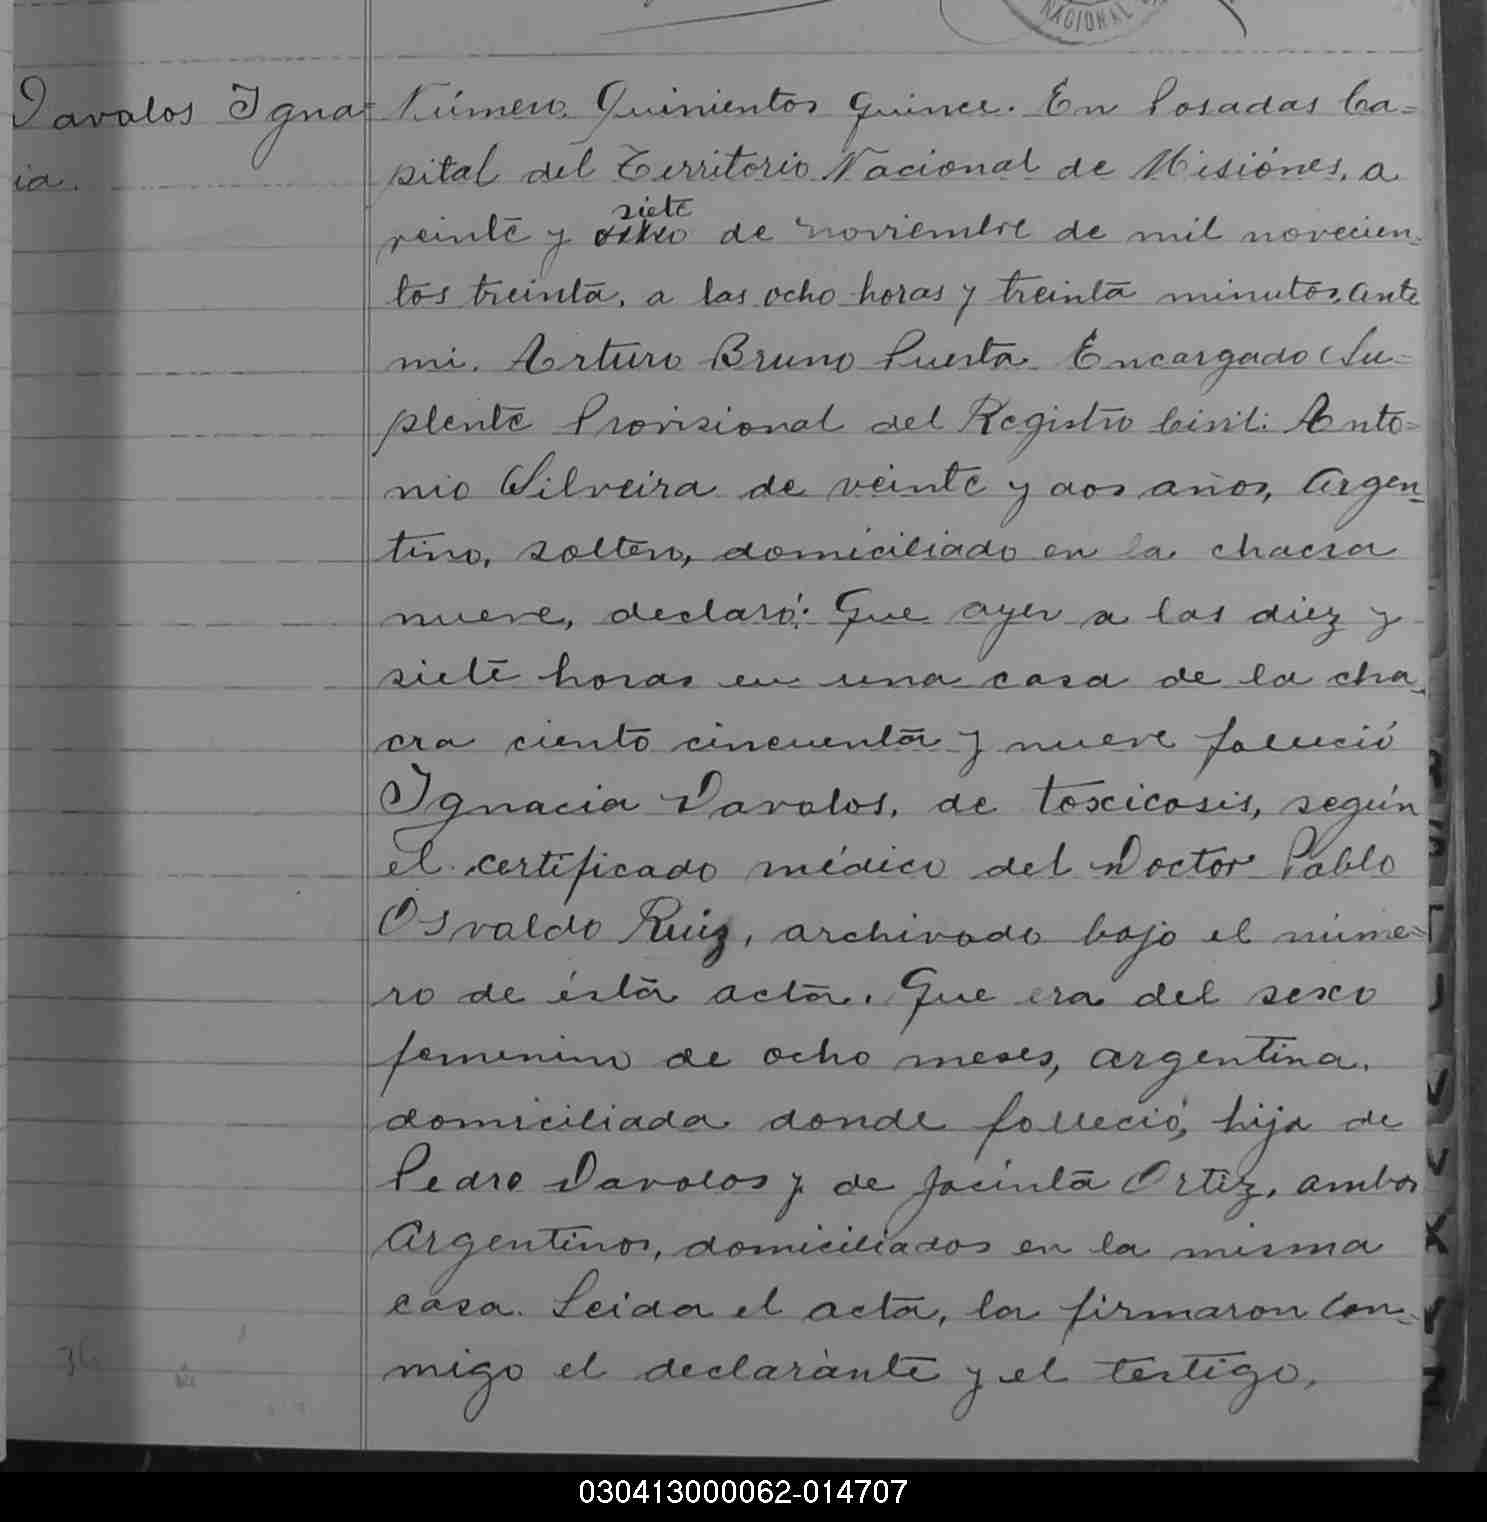 NACIONAL
Davalos Igna=
cia.
Número Quinientos quince. En Posadas Ca=
pital del Territorio Nacional de Misiónes, a
siete
veinte y de noviembre de mil novecien=
tos treinta, a las ocho horas y treinta minutos, ante
mi, Arturo Bruno Puesta Encargado Su=
plente Provisional del Registro Civil: Anto=
nio Silveira de veinte y dos años, Argen=
tino, soltero, domiciliado en la chacra
nueve, declaró: Que ayer a las diez y
siete horas en una casa de la cha=
cra ciento cincuenta y nueve falleció
Ignacia Davalos, de toxicosis, según
el certificado médico del Doctor Pablo
Osvaldo Ruiz, archivado bajo el núme=
ro de ésta acta. Que era del sexo
femenino de ocho meses, argentina,
domiciliada donde falleció, hija de
Pedro Davalos y de Jacinta Ortiz, ambos
Argentinos, domiciliados en la misma
casa. Leida el acta, la firmaron con=
migo el declarante y el testigo,
030413000062-014707